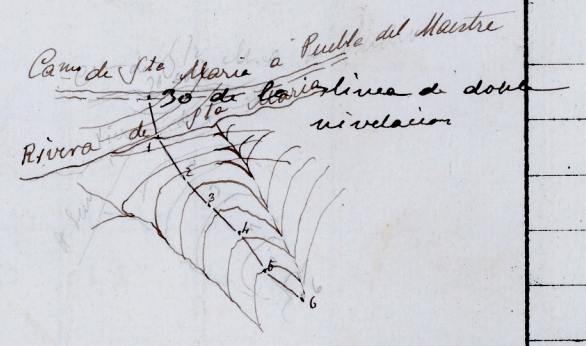 Camo de Sta Maria a Puebla del Maestre
30 de la linea de doble
nivelacion
Rivera de Sta Maria
1
2
3
4
5
6